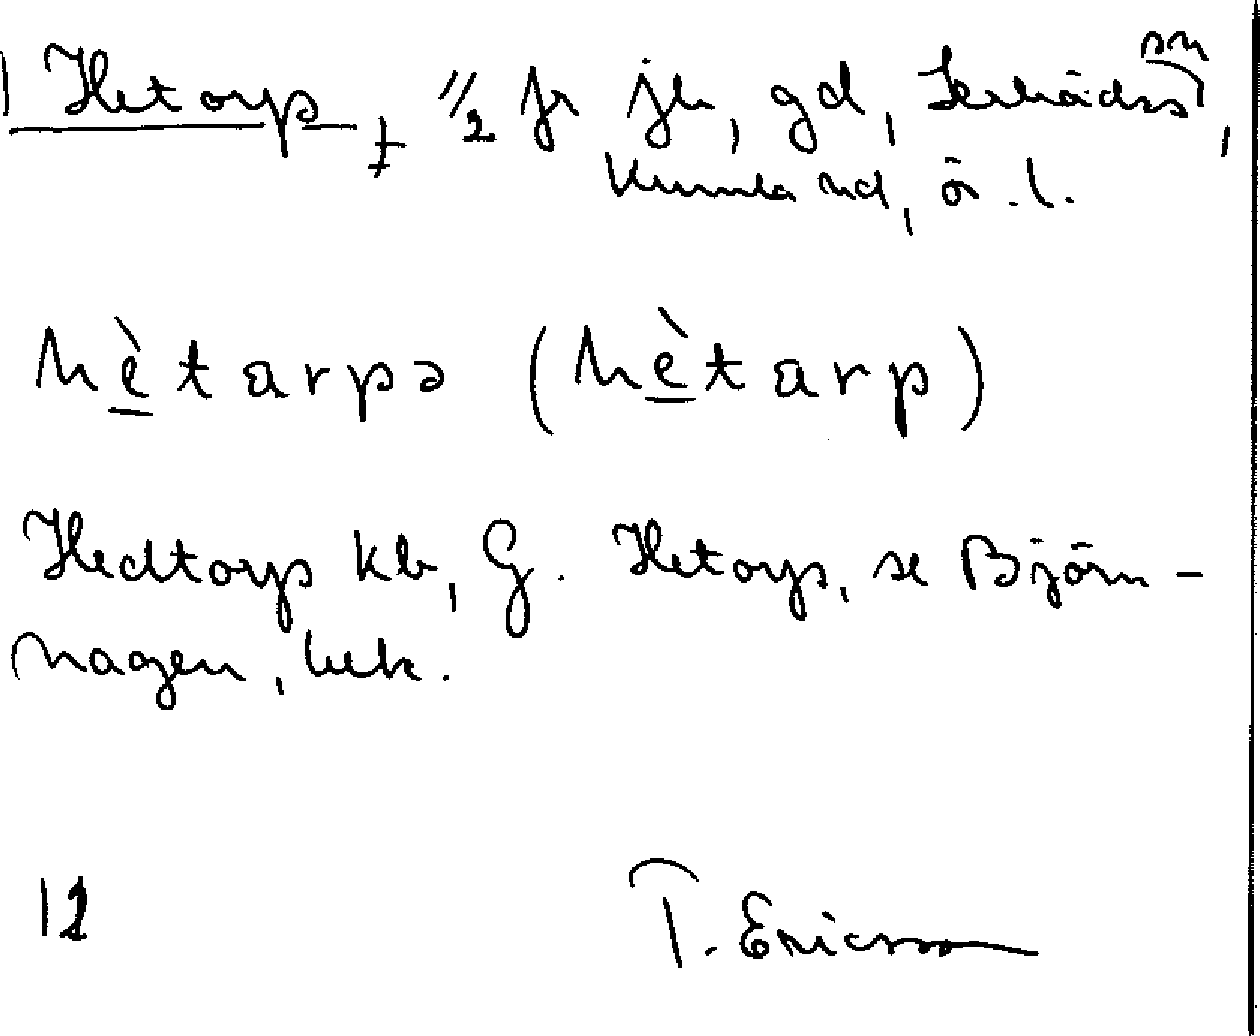 Hetorp, ‡ 1/2 fr jb, gd, Lerbäcks sn,
Kumla hd, ör. l.
hètarpə (hètarp)
Hedtorp kb, G. Hetorp, se Björn-
hagen, bek.
12 T. Ericsson